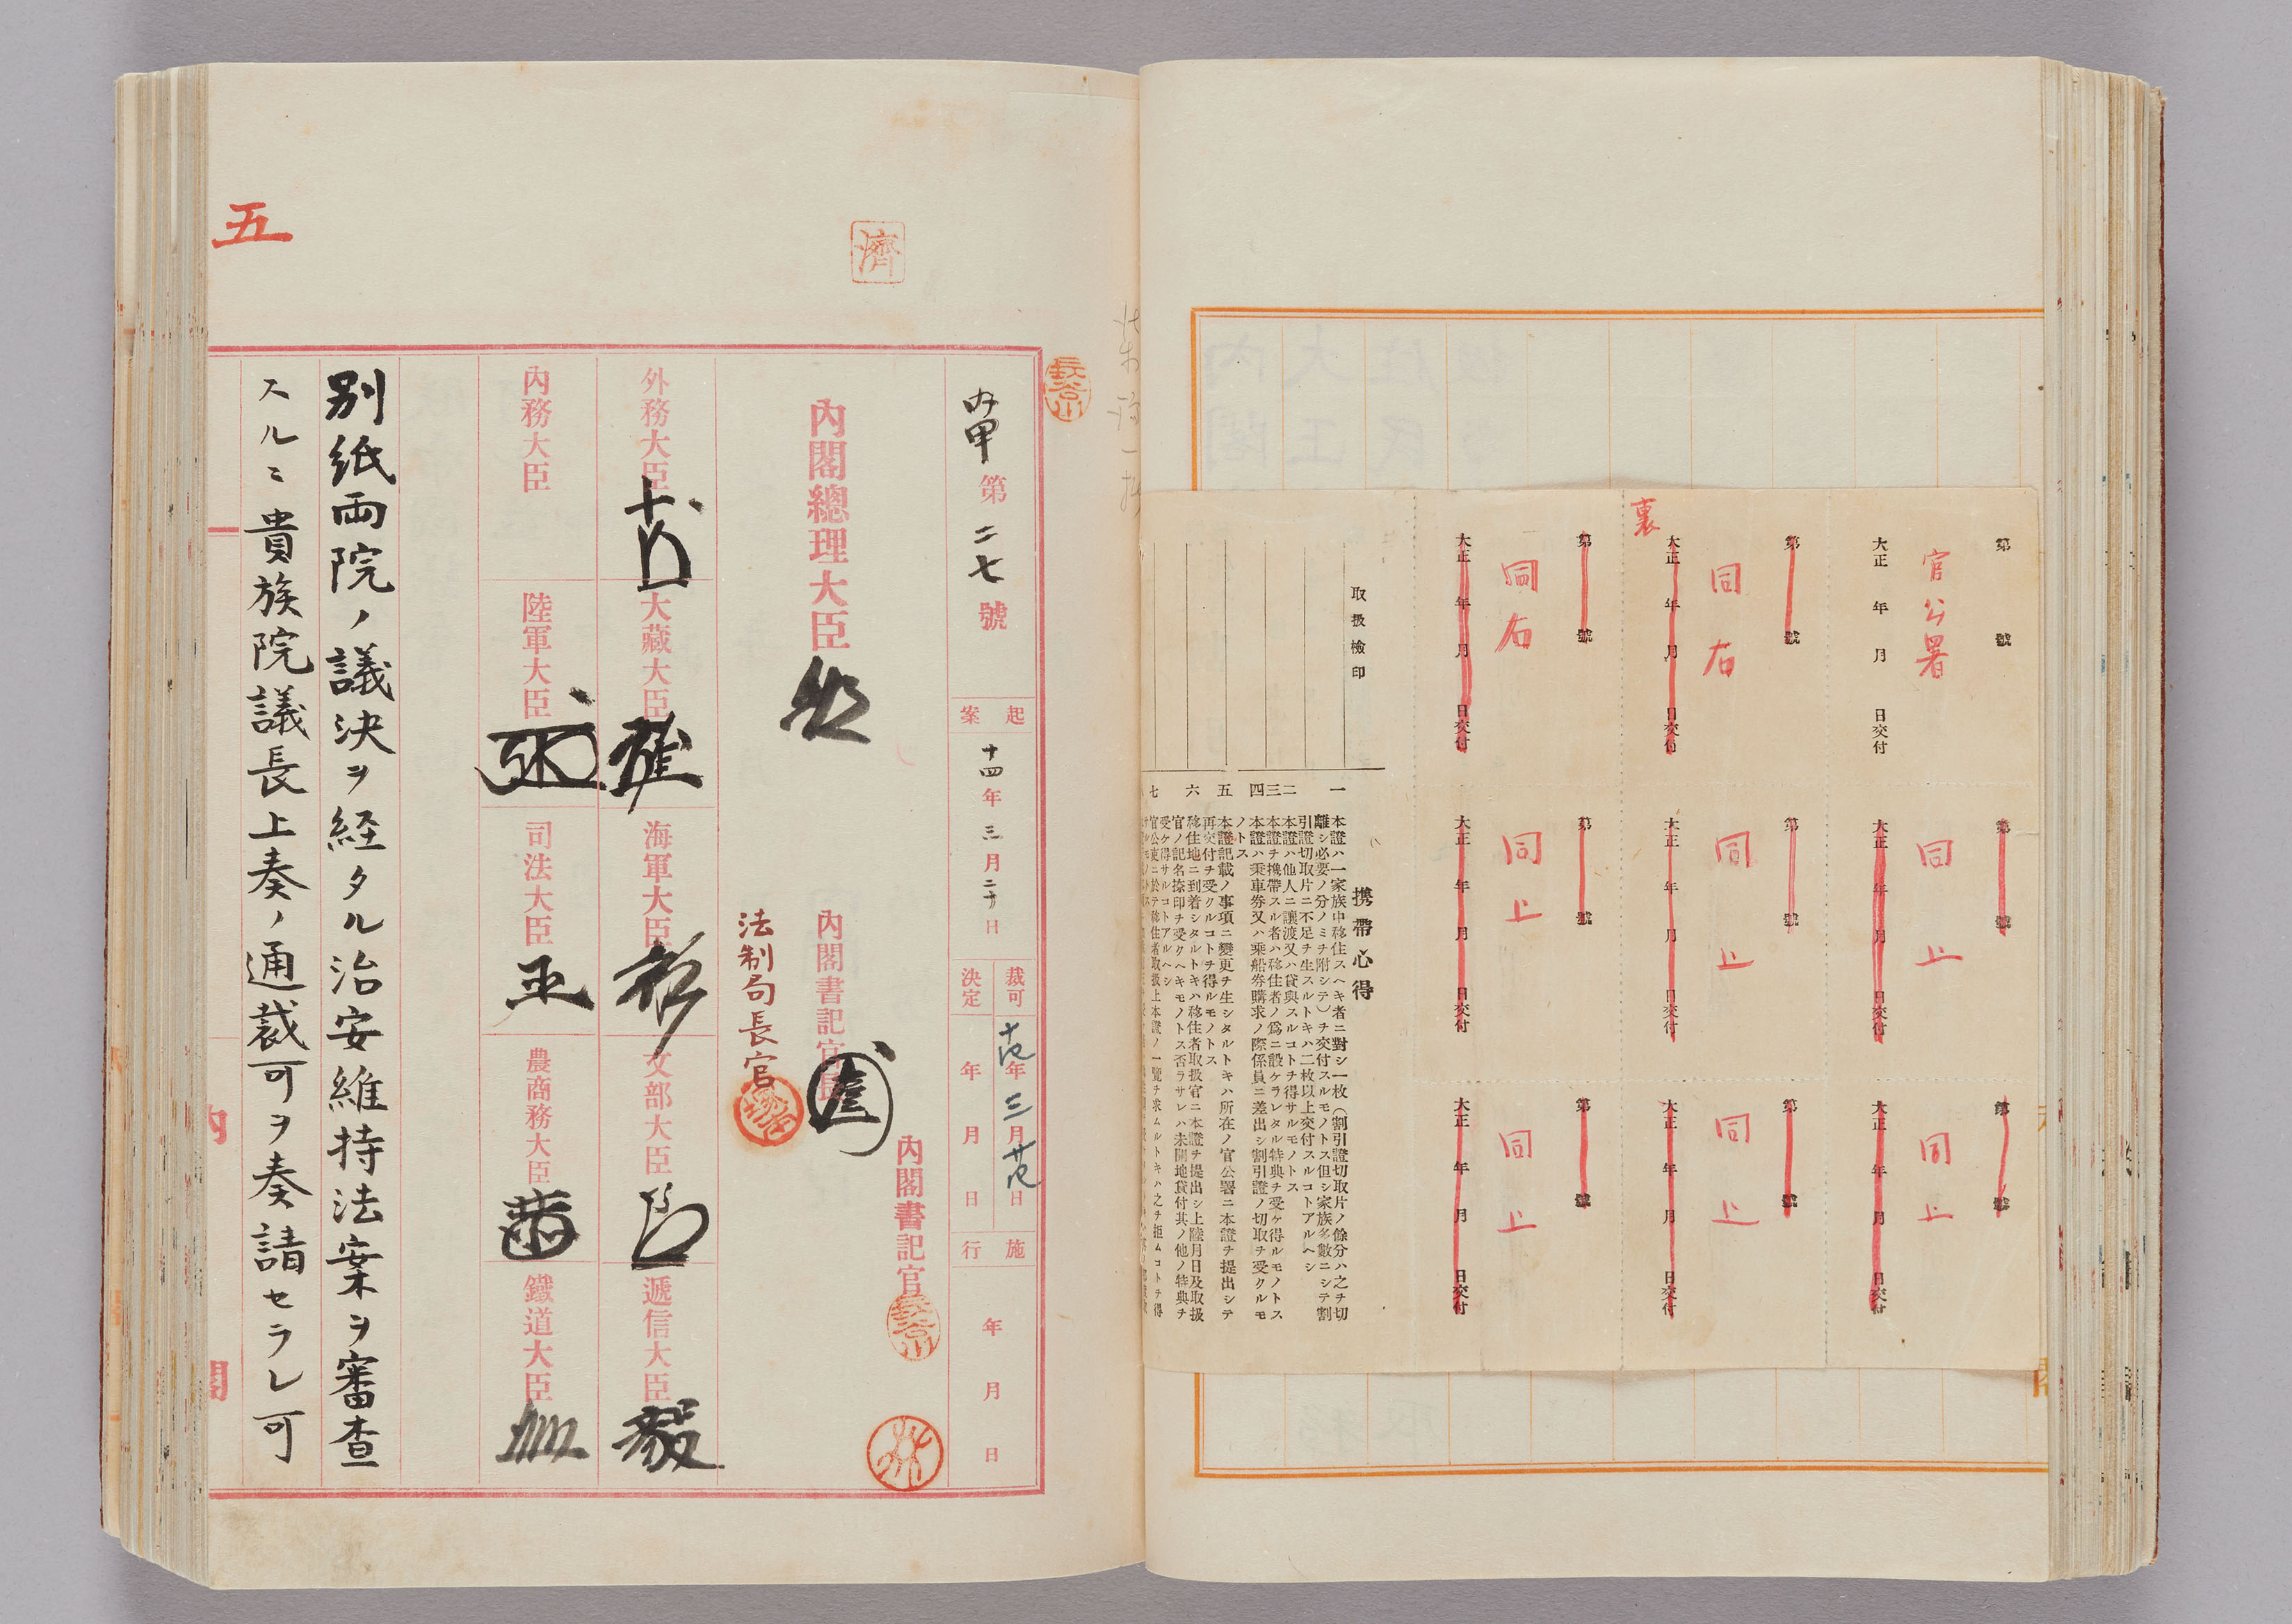 裏
第　號
官公署
大正　年　月　日交付
第　號
同右
大正　年　月　日交付
第　號
同右
大正　年　月　日交付
第　號
同上
大正　年　月　日交付
第　號
同上
大正　年　月　日交付
第　號
同上
大正　年　月　日交付
第　號
同上
大正　年　月　日交付
第　號
同上
大正　年　月　日交付
第　號
同上
大正　年　月　日交付
取扱檢印
携帶心得
一　本證ハ一家族中移住スヘキ者ニ對シ一枚（割引證切取片ノ餘分ハ之チ切
離シ必要ノ分ノミチ附シテ）チ交付スルモノトス但シ家族多數ニシテ割
引證切取片ニ不足チ生スルトキハ二枚以上交付スルコトアルヘシ
二　本證ハ他人ニ讓渡又ハ貸與スルコトチ得サルモノトス
三　本證チ携帶スル者ハ移住者ノ爲ニ設ケラレタル特典チ受ケ得ルモノトス
四　本證ハ乘車券又ハ乘船券購求ノ際係員ニ差出シ割引證ノ切取チ受クルモ
ノトス
五　本證記載ノ事項ニ變更チ生シタルトキハ所在ノ官公署ニ本證チ提出シテ
再交付チ受クルコトチ得ルモノトス
六　移住地ニ到着シタルトキハ移住者取扱官ニ本證チ提出シ上陸月日及取扱
官ノ記名捺印チ受クヘキモノトス否ラサレハ未開地貸付其ノ他ノ特典チ
受ケ得サルコトアルヘシ
七　官公吏ニ於テ移住者取扱上本證ノ一覽チ求ムルトキハ之チ拒ムコトチ得
長谷川
濟
内甲第二七號
起案　十四年三月二十日
裁可　十四年三月廿一日
決定　年　月　日
施行　年　月　日
內閣總理大臣
內閣書記官長
內閣書記官　長谷川
法制局長官
外務大臣
大藏大臣
海軍大臣
文部大臣
遞信大臣　毅
內務大臣
陸軍大臣
司法大臣
農商務大臣
鐵道大臣
別紙両院ノ議決ヲ経タル治安維持法案ヲ審査
スルニ貴族院議長上奏ノ通裁可ヲ奏請セラレ可
五
內
閣